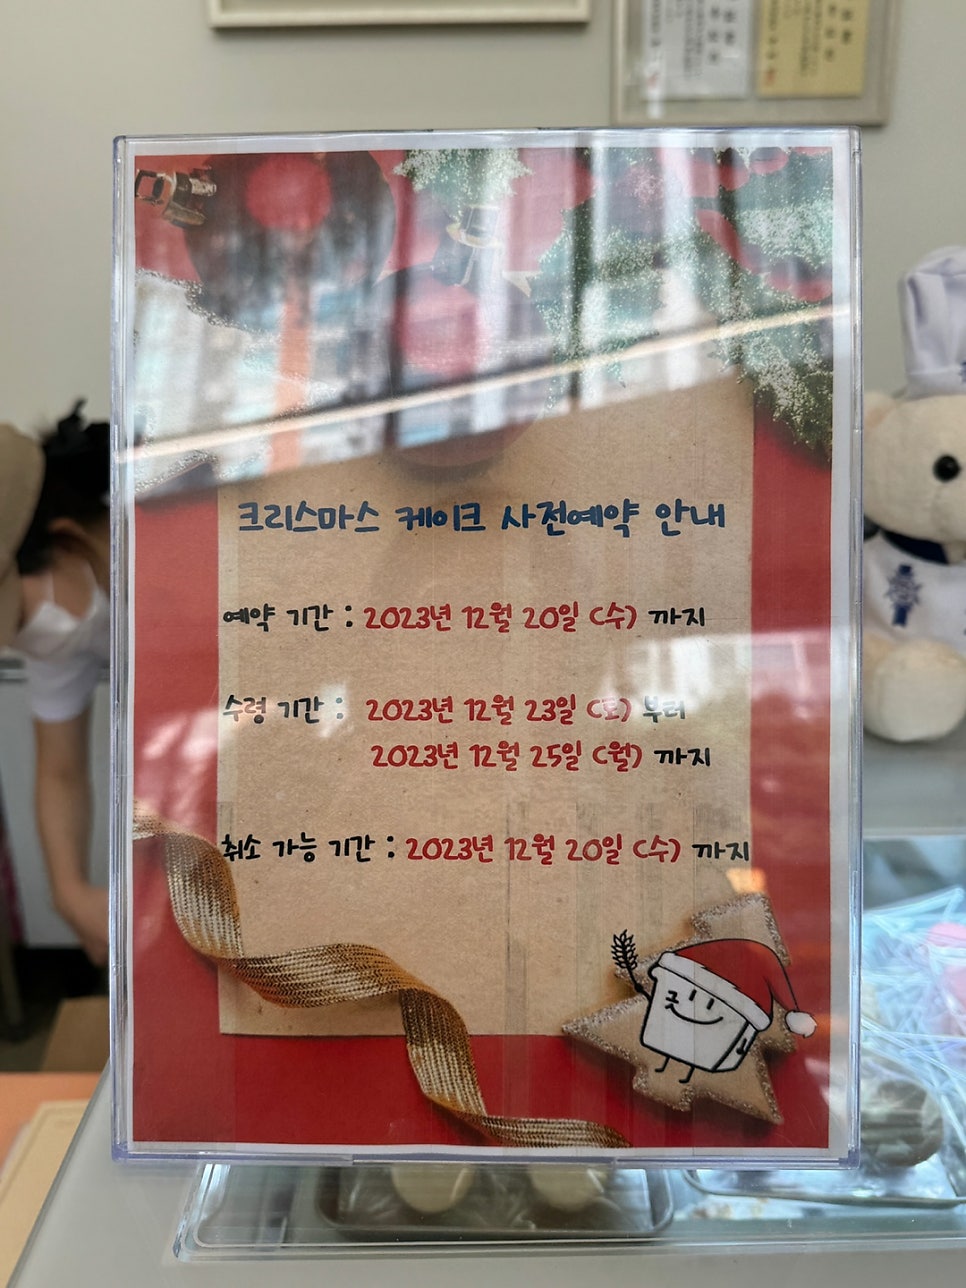 크리스마스 케이크 사전예약 안내
예약 기간 : 2023년 12월 20일 (수) 까지
수령 기간 : 2023년 12월 23일 (토) 부터
2023년 12월 25일 (월) 까지
취소 가능 기간 : 2023년 12월 20일 (수) 까지
굿